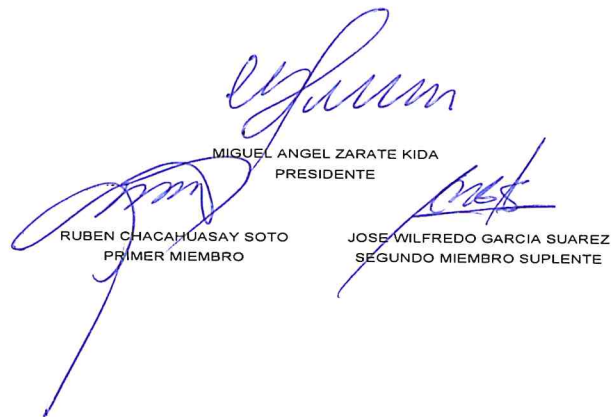 MIGUEL ANGEL ZARATE KIDA
PRESIDENTE
RUBEN CHACAHUASAY SOTO
PRIMER MIEMBRO
JOSE WILFREDO GARCIA SUAREZ
SEGUNDO MIEMBRO SUPLENTE